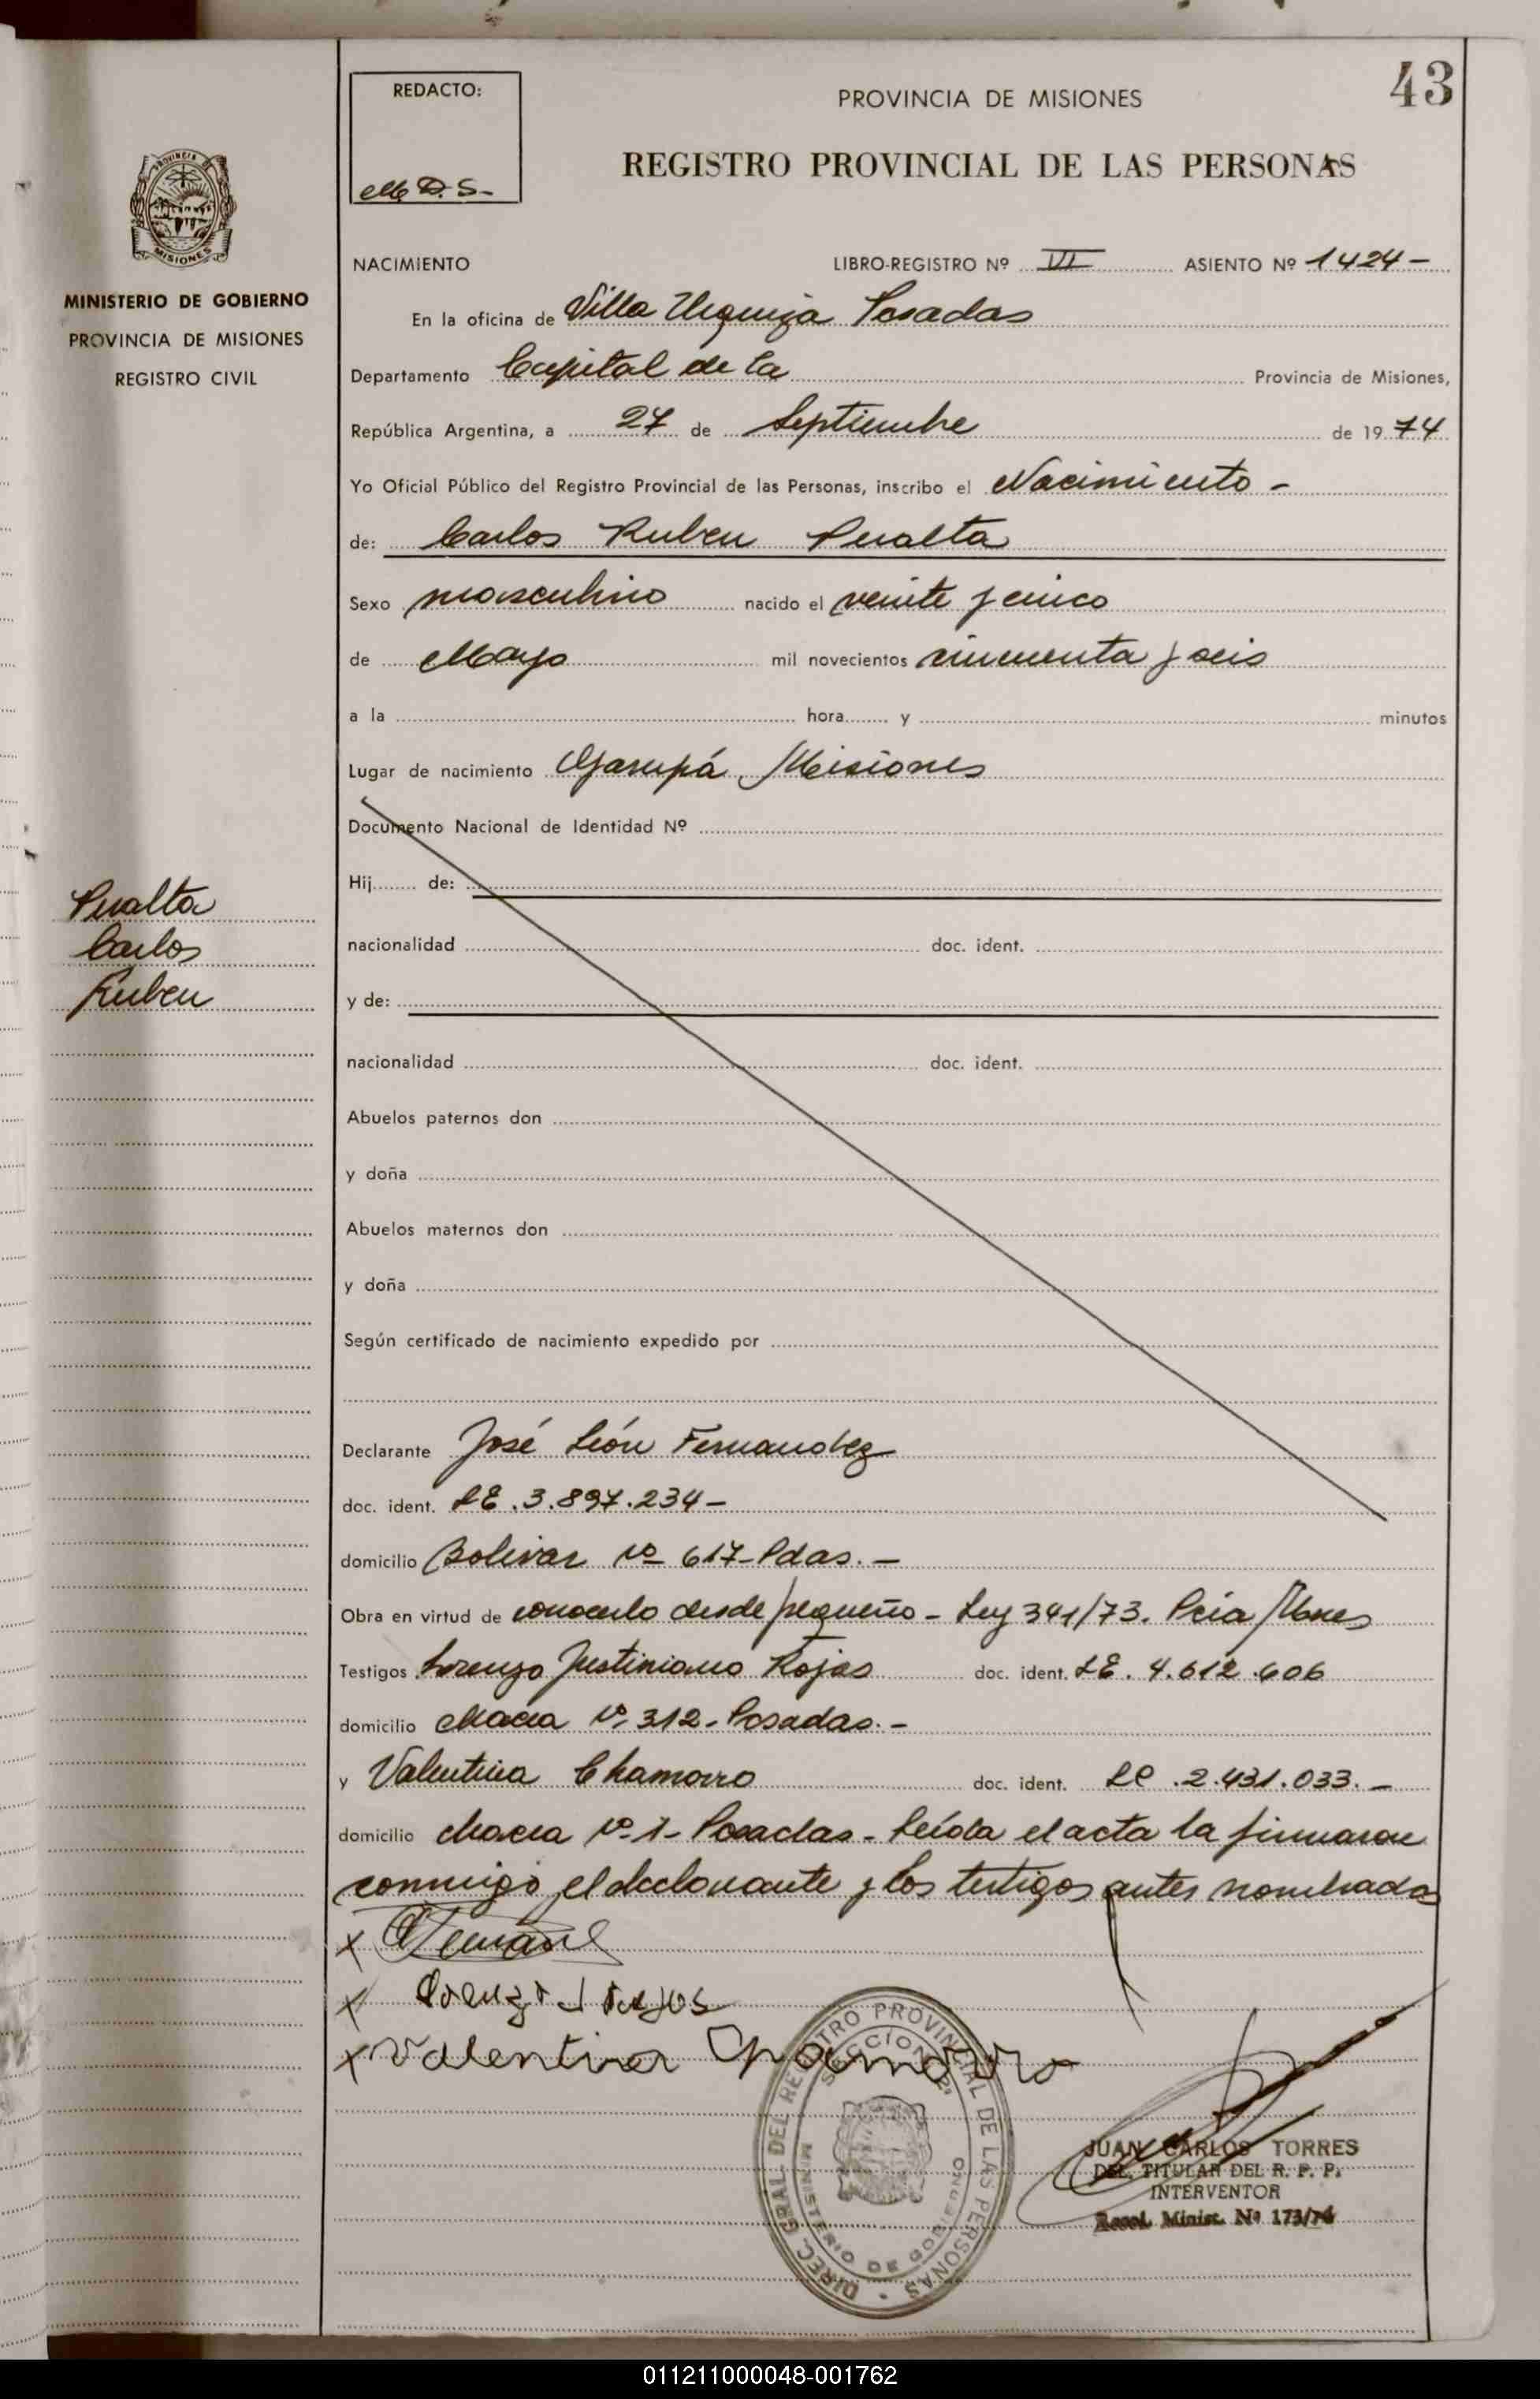 43
REDACTO:
M D. S-
PROVINCIA DE MISIONES
REGISTRO PROVINCIAL DE LAS PERSONAS
PROVINCIA DE
MISIONES
MINISTERIO DE GOBIERNO
PROVINCIA DE MISIONES
REGISTRO CIVIL
NACIMIENTO LIBRO-REGISTRO Nº VI ASIENTO Nº 1424-
En la oficina de Villa Urquiza Posadas
Departamento Capital de la Provincia de Misiones,
República Argentina, a 27 de Septiembre de 1974
Yo Oficial Público del Registro Provincial de las Personas, inscribo el Nacimiento -
de: Carlos Ruben Peralta
Sexo masculino nacido el veinte y cinco
de Mayo mil novecientos cincuenta y seis
a la hora y minutos
Lugar de nacimiento Garupá, Misiones
Documento Nacional de Identidad Nº
Hij de:
Peralta
Carlos
Ruben
nacionalidad doc. ident.
y de:
nacionalidad doc. ident.
Abuelos paternos don
y doña
Abuelos maternos don
y doña
Según certificado de nacimiento expedido por
Declarante José León Fernandez
doc. ident. LE.3.897.234-
domicilio Bolivar Nº 617-Pdas.-
Obra en virtud de conocerlo desde pequeño - Ley 341/73. Pcia Mnes
Testigos Lorenzo Justiniano Rojas doc. ident. LE. 4.612.606
domicilio Nº 312-Posadas.-
y Valentina Chamorro doc. ident. LC.2.431.033.-
domicilio Nº 1- Posadas- Leída el acta la firmaron
conmigo, el declarante y los testigos antes nombrados
x
x Lorenzo J Rojos
x Valentina Chamorro
DIREC. GRAL. DEL REGISTRO PROVINCIAL DE LAS PERSONAS
SECCION 2ª
MINISTERIO DE GOBIERNO
JUAN CARLOS TORRES
DEL. TITULAR DEL R. P. P.
INTERVENTOR
Resol. Minist. Nº 173/74
011211000048-001762